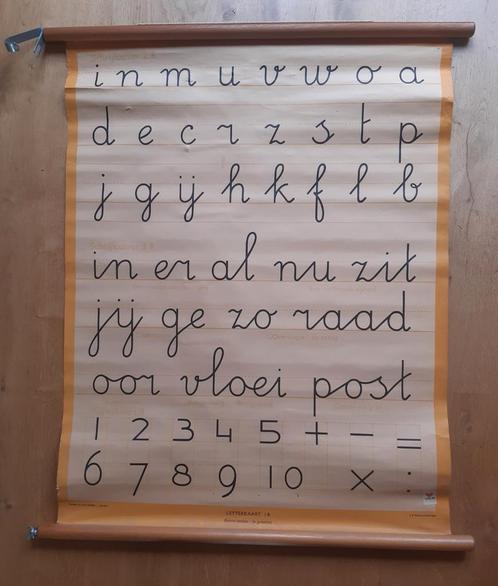 i n m u v w o a
d e c r z s t p
j g ij h k f l b
in er al nu zit
jij ge zo raad
oor vloei post
1 2 3 4 5 + - =
6 7 8 9 10 × :
LETTERKAART 1 B